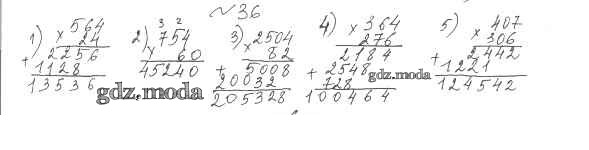 №36
1) × 564
24
+ 2256
1128
13536
2) 3 2
× 754
60
45240
3) × 2504
82
+ 5008
20032
205328
4) × 364
276
2184
+ 2548
728
100464
5) × 407
306
+ 2442
1221
124542
gdz.moda
gdz.moda